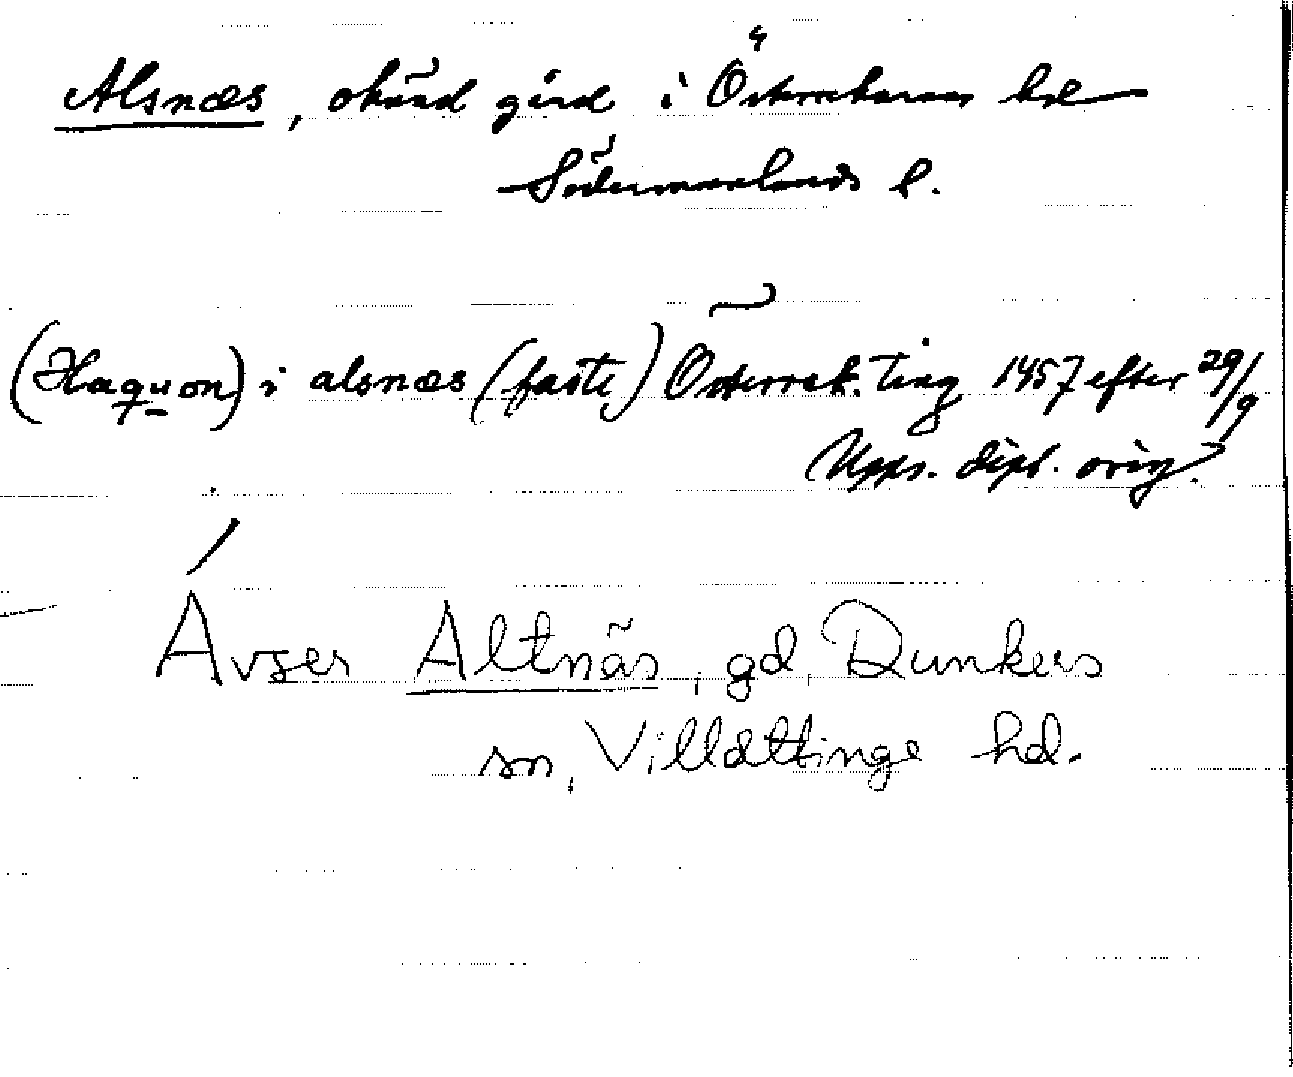 Alsnæs, okänd gård i Österrekarne hd
Södermanlands l.
(Haquon) i alsnæs (faste) Österrek. Ting 1457 efter 29/9
Upps. dipl. orig.
Avser Altnäs, gd, Dunkers
sn, Villåttinge hd.